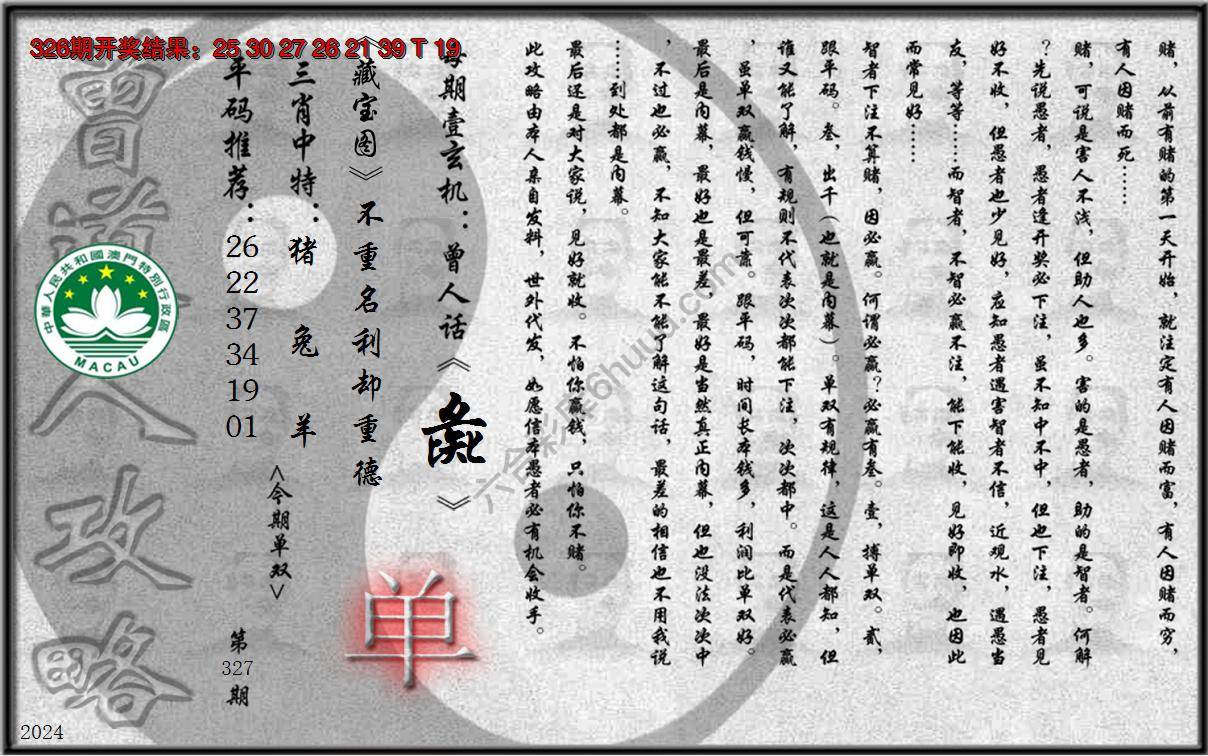 326期开奖结果：25 30 27 26 21 39 T 19
赌，从前有赌的第一天开始，就注定有人因赌而富，有人因赌而穷，
有人因赌而死……
赌，可说是害人不浅，但助人也多。害的是愚者，助的是智者。何解
？先说愚者，愚者逢开奖必下注，虽不知中不中，但也下注，愚者见
好不收，但愚者也少见好，应知愚者遇害智者不信，近观水，遇愚当
友，等等……而智者，不智必赢不注，能下能收，见好即收，也因此
而常见好……
智者下注不算赌，因必赢。何谓必赢？必赢有叁。壹，搏单双。贰，
跟平码。叁，出千（也就是内幕）。单双有规律，这是人人都知，但
谁又能了解，有规则不代表次次都能下注，次次都中。而是代表必赢
，虽单双赢钱慢，但可靠。跟平码，时间长本钱多，利润比单双好。
最后是内幕，最好也是最差，最好是当然真正内幕，但也没法次次中
，不过也必赢，不知大家能不能了解这句话，最差的相信也不用我说
……到处都是内幕。
最后还是对大家说，见好就收。不怕你赢钱，只怕你不赌。
此攻略由本人亲自发料，世外代发，如愿信本愚者必有机会收手。
每期壹玄机：曾人话《彘》
《藏宝图》不重名利却重德
三肖中特：猪 兔 羊
平码推荐：26 22 37 34 19 01
<今期单双>
单
第327期
曾道人攻略
中華人民共和國澳門特別行政區
MACAU
六合彩库6huuu.com
2024